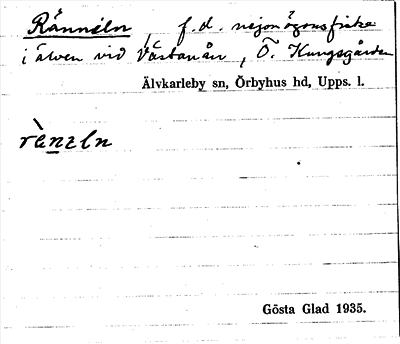 Rännéln, f.d. nejonögonsfiske
i älven vid Västanån, Ö. Kungsgården
Älvkarleby sn, Örbyhus hd, Upps. l.
rènəln
Gösta Glad 1935.